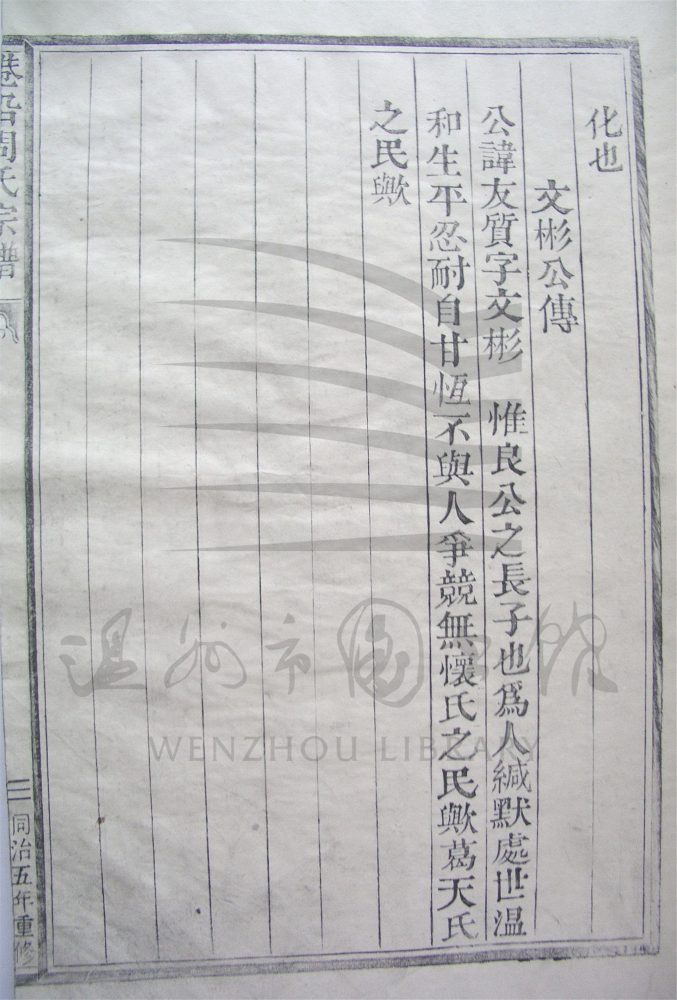 化也
文彬公傳
公諱友質字文彬 惟良公之長子也爲人緘默處世温
和生平忍耐自甘恆不與人爭競無懷氏之民歟葛天氏
之民歟
港口周氏宗譜
三
同治五年重修
温州市图书馆
WENZHOU LIBRARY